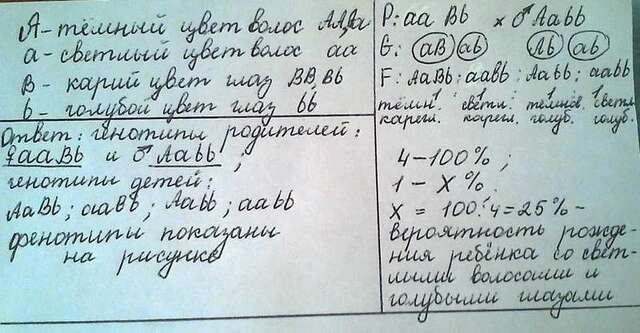 А - тёмный цвет волос АА, Аа
а - светлый цвет волос аа
В - карий цвет глаз ВВ, Вb
b - голубой цвет глаз bb
Ответ: генотипы родителей:
♀ааВb и ♂Ааbb ;
генотипы детей:
АаВb ; ааВb ; Ааbb ; ааbb
фенотипы показаны
на рисунке
Р: аа Вb х ♂ Ааbb
G: аВ аb Аb аb
F: АаВb : ааВb : Ааbb : ааbb
1 1 1 1
тёмн. светл. светл.
карегл. карегл. голуб. голуб.
4 - 100% ;
1 - Х%.
Х = 100:4 = 25% -
вероятность рожде-
ния ребёнка со свет-
лыми волосами и
голубыми глазами